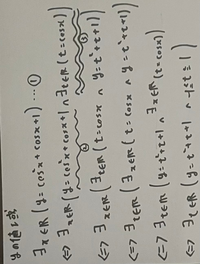 yの値域
∃x∈ℝ (y=cos²x+cosx+1) … ①
⇔ ∃x∈ℝ (y=cos²x+cosx+1 ∧ ∃t∈ℝ (t=cosx))
⇔ ∃x∈ℝ (∃t∈ℝ (t=cosx ∧ y=t²+t+1))
⇔ ∃t∈ℝ (∃x∈ℝ (t=cosx ∧ y=t²+t+1))
⇔ ∃t∈ℝ (y=t²+t+1 ∧ ∃x∈ℝ (t=cosx))
⇔ ∃t∈ℝ (y=t²+t+1 ∧ -1≤t≤1)